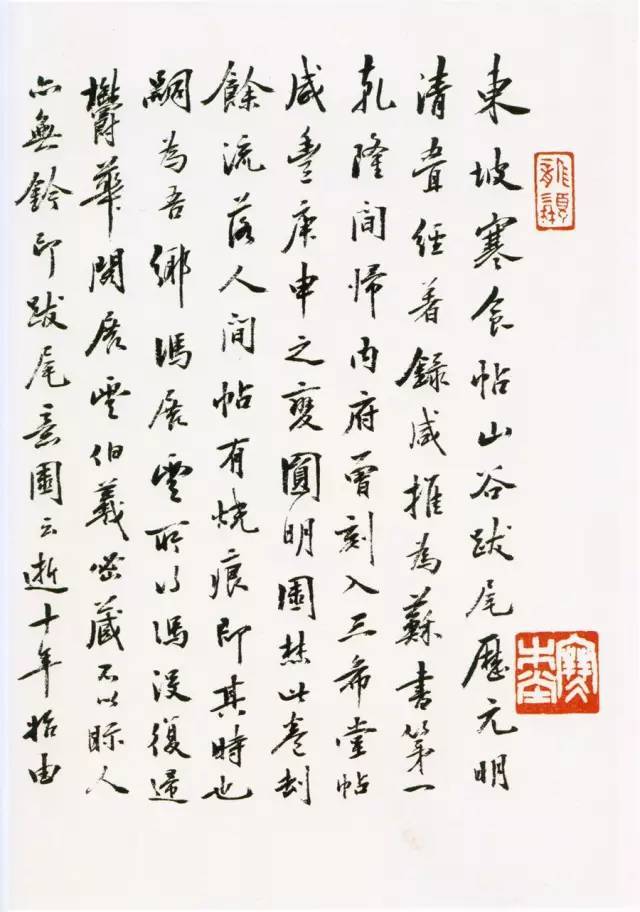 東坡寒食帖山谷跋尾歷元明
清疊經著錄咸推為蘇書第一
乾隆間歸內府曾刻入三希堂帖
咸豐庚申之變圓明園焚此卷刦
餘流落人間帖有燒痕即其時也
嗣為吾鄉馮展雲所得馮沒復歸
欝華閣展雲伯羲密藏不以眎人
亦無鈐印跋尾意園云逝十年始由